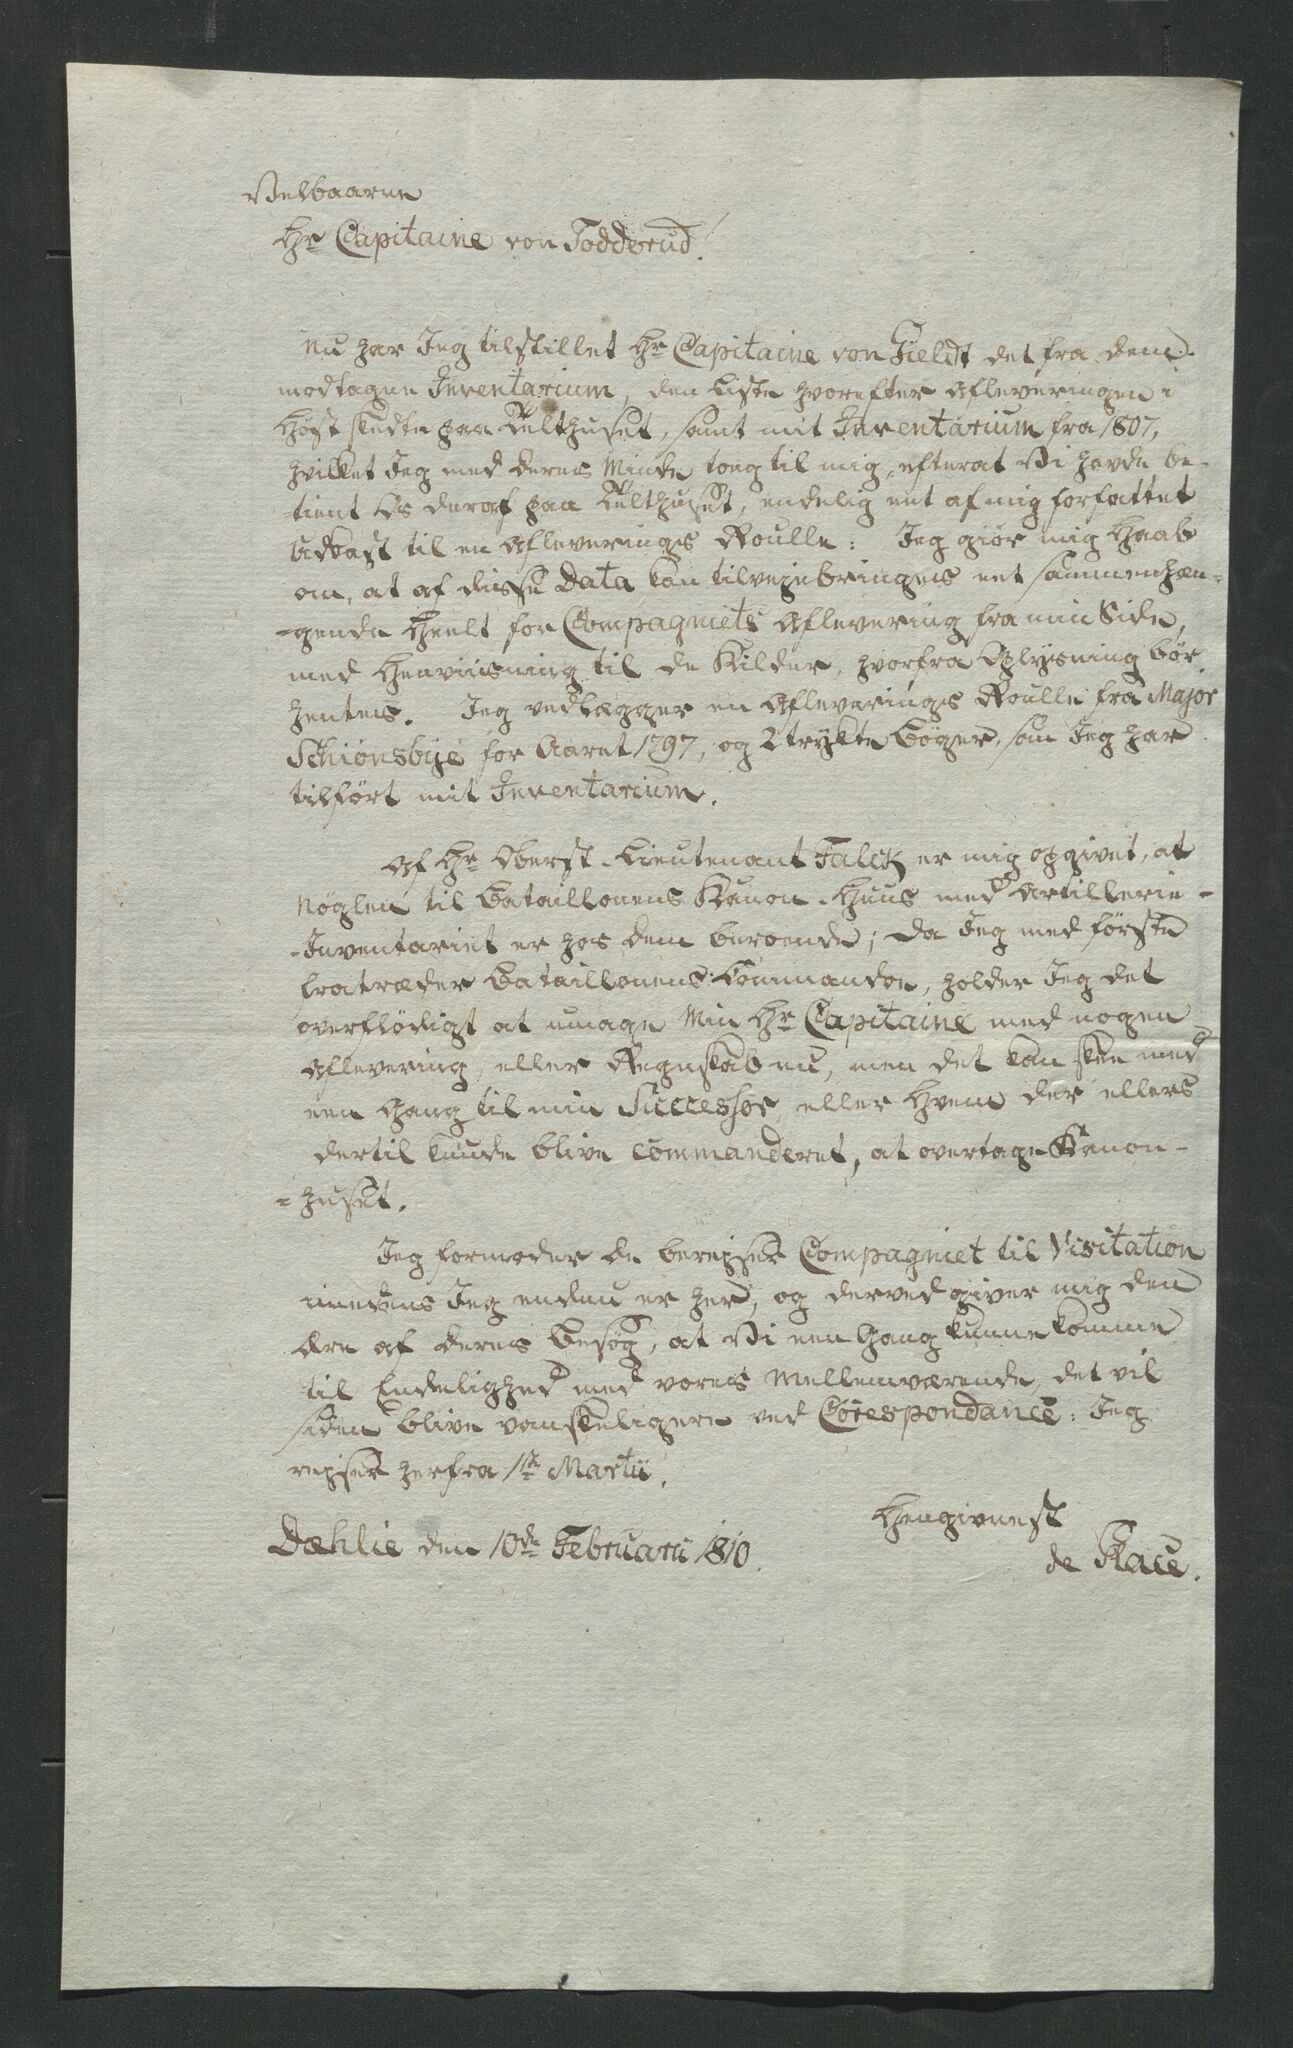 Velbaarne
Hr Capitaine von Todderud!
Nu har Jeg tilstillet Hr Capitaine von Fieldt det fra dem
modtagne Inventarium, den Liste hvorefter Afleveringen i
Høst skedte paa Telthuset, samt mit Inventarium fra 1807,
hvilket Jeg med deres Minde tog til mig, efterat Vi havde be-
tient Os deraf paa Telthuset, endelig eet af mig forfattet
Udkast til en Afleverings Roulle: Jeg giør mig Haab
om, at af disse Data kan tilvejebringes eet sammenhæn-
-gende Heelt for Compagniets Aflevering fra min Side,
med Henviisning til de Kilder, hvorfra Oplysning bør
hentes. Jeg vedlægger en Afleverings Roulle fra Major
Schiønsbye for Aaret 1797, og 2 trykte Bøger, som Jeg har
tilført mit Inventarium.
Af Hr Oberst-Lieutenant Falck er mig opgivet, at
Nøglen til Bataillonens Kanon-Huus med Artillerie-
-Inventariet er hos dem beroende; da Jeg med første
fratræder Bataillonens Commandoe, holder Jeg det
overflødigt at umage Min Hr Capitaine med nogen
Aflevering, eller Regnskab nu, men det kan skee med
een Gang til min Successor, eller Hvem der ellers
dertil kunde blive commanderet, at overtage Kanon-
=huset.
Jeg formoder De berejser Compagniet til Visitation
imedens Jeg endnu er her, og derved giver mig den
Ære af deres Besøg, at Vi een Gang kunne komme
til Endelighed med vores Mellemværende, det vil
siden blive vanskeligere ved Corespondance: Jeg
rejser herfra 1ste Martii.
Hengivenst
Dæhlie den 10de Februarii 1810.
de Place.